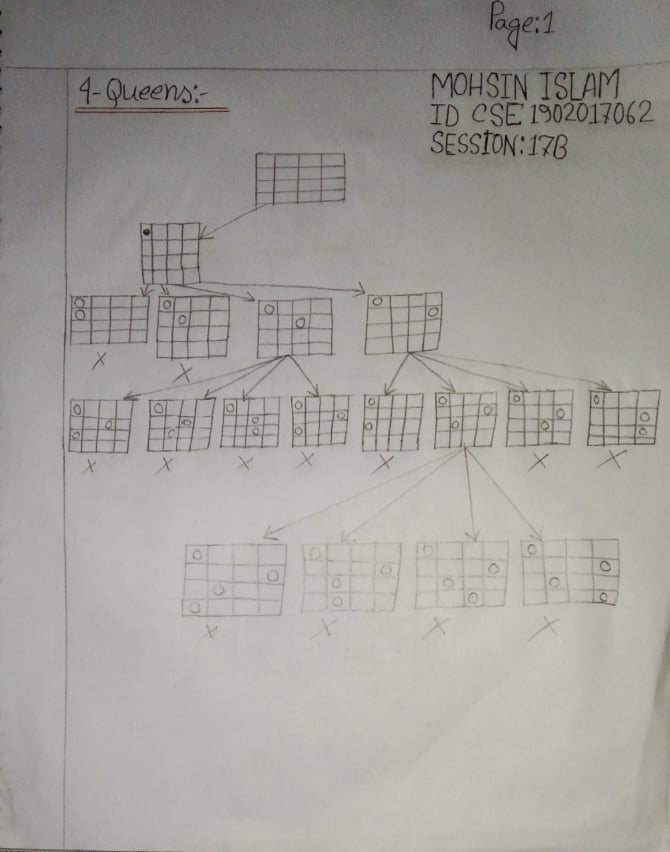 Page:1
4-Queens:-
MOHSIN ISLAM
ID CSE 1902017062
SESSION:17B
X
X
X
X
X
X
X
X
X
X
X
X
X